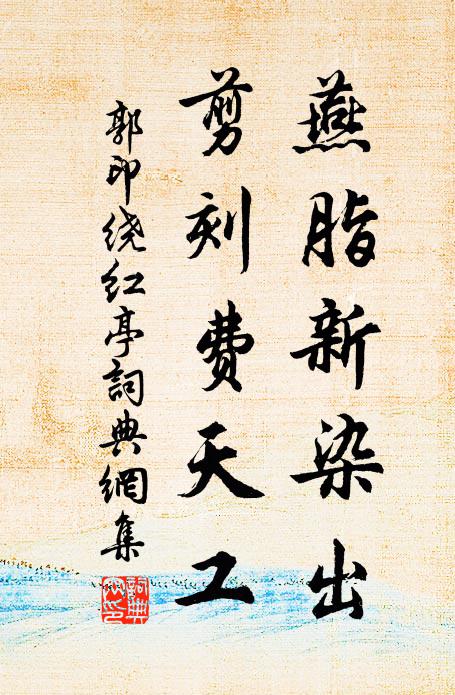 燕脂新染出
剪刻费天工
郭印绕红亭詞典網集